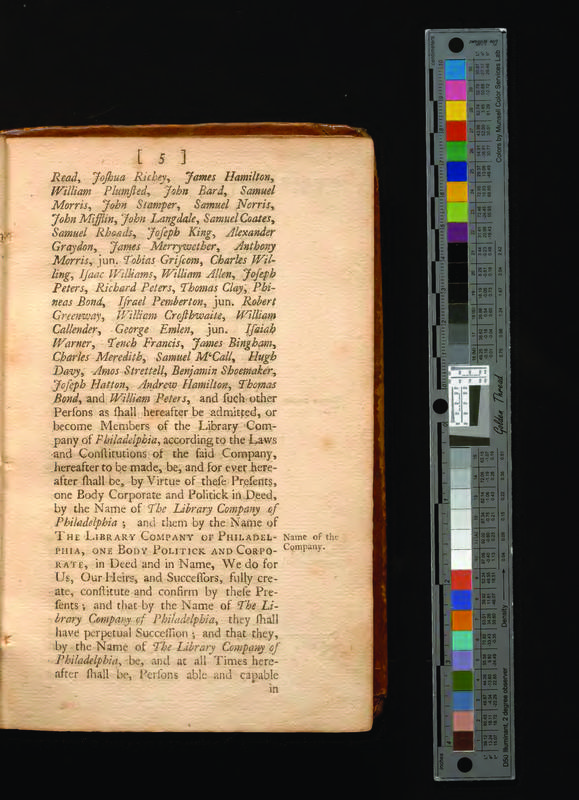 [ 5 ]
Read, Joſhua Richey, James Hamilton,
William Plumſted, John Bard, Samuel
Morris, John Stamper, Samuel Norris,
John Mifflin, John Langdale, Samuel Coates,
Samuel Rhoads, Joſeph King, Alexander
Graydon, James Merrywether, Anthony
Morris, jun. Tobias Griſcom, Charles Wil-
ling, Iſaac Williams, William Allen, Joſeph
Peters, Richard Peters, Thomas Clay, Phi-
neas Bond, Iſrael Pemberton, jun. Robert
Greenway, William Croſthwaite, William
Callender, George Emlen, jun. Iſaiah
Warner, Tench Francis, James Bingham,
Charles Meredith, Samuel McCall, Hugh
Davy, Amos Strettell, Benjamin Shoemaker,
Joſeph Hatton, Andrew Hamilton, Thomas
Bond, and William Peters, and ſuch other
Perſons as ſhall hereafter be admitted, or
become Members of the Library Com-
pany of Philadelphia, according to the Laws
and Conſtitutions of the ſaid Company,
hereafter to be made, be, and for ever here-
after ſhall be, by Virtue of theſe Preſents,
one Body Corporate and Politick in Deed,
by the Name of The Library Company of
Philadelphia ; and them by the Name of
THE LIBRARY COMPANY OF PHILADEL-
PHIA, ONE BODY POLITICK AND CORPO-
RATE, in Deed and in Name, We do for
Us, Our Heirs, and Succeſſors, fully cre-
ate, conſtitute and confirm by theſe Pre-
ſents ; and that by the Name of The Li-
brary Company of Philadelphia, they ſhall
have perpetual Succeſſion ; and that they,
by the Name of The Library Company of
Philadelphia, be, and at all Times here-
after ſhall be, Perſons able and capable
in
Name of the
Company.
Colors by Munsell Color Services Lab
Golden Thread
Density
D50 Illuminant, 2 degree observer
inches
centimeters